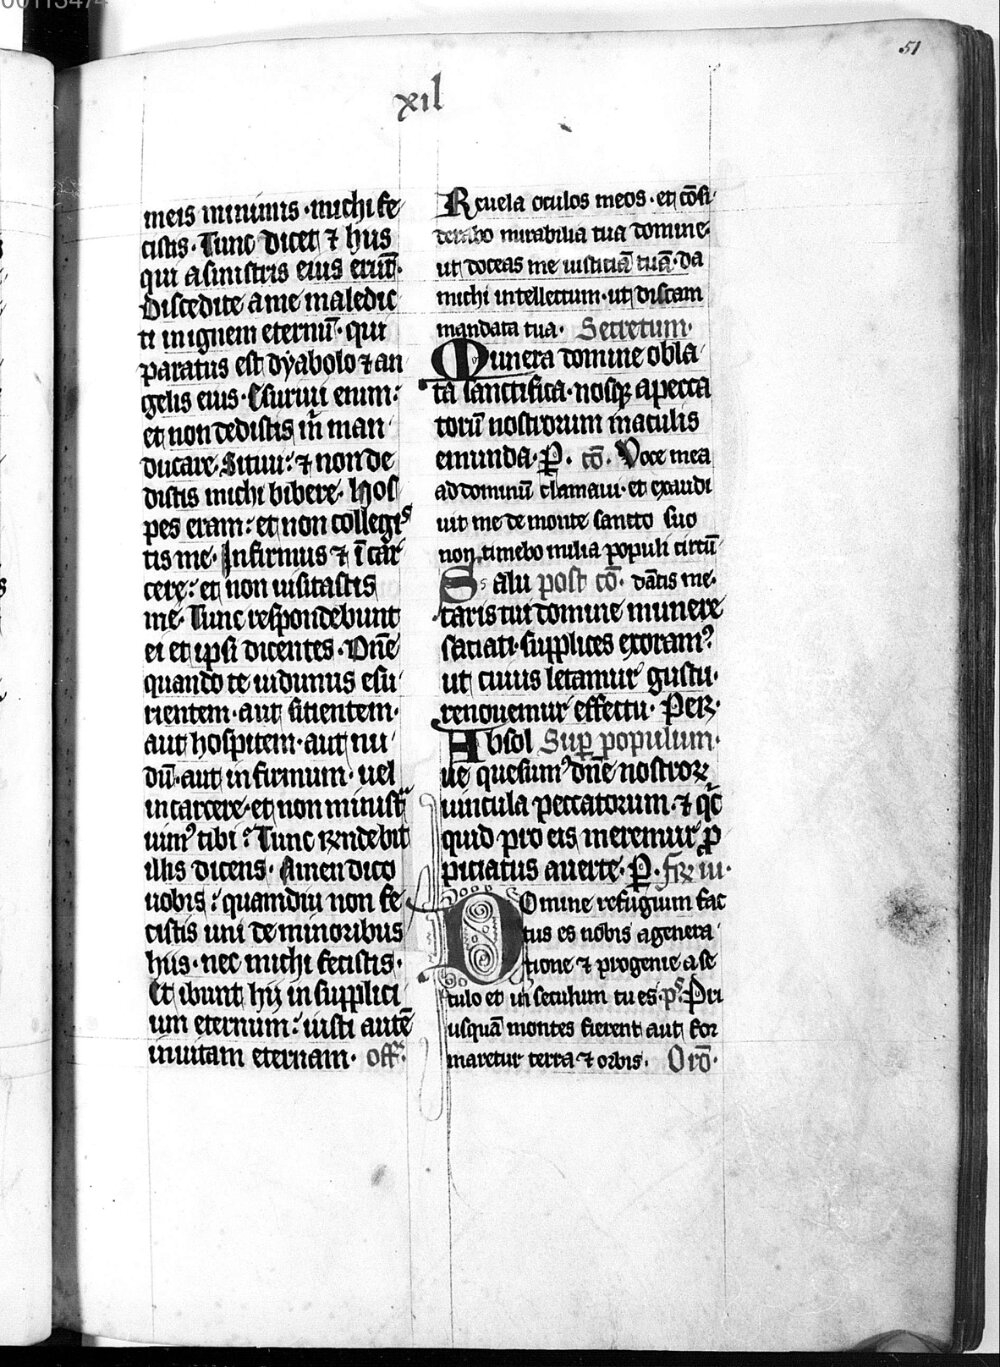 51
xil
meis minimis · michi fe
cistis · Tunc dicet ⁊ hiis
qui a sinistris eius erūt ·
Discedite a me maledic
ti in ignem eternū · qui
paratus est dyabolo ⁊ an
gelis eius · Esuriui enim :
et non dedistis m̄ man
ducare · Sitiui : ⁊ non de
distis michi bibere · Hos
pes eram : et non collegis
tis me · Infirmus ⁊ ī car
cere : et non uisitastis
me · Tunc respondebunt
ei et ipsi dicentes · Dn̄e
quando te uidimus esu
rientem · aut sitientem ·
aut hospitem · aut nu
dū · aut infirmum · uel
in carcere · et non minist
uim᷒ tibi : Tunc r̄ndebit
illis dicens · Amen dico
uobis : quamdiu non fe
cistis uni de minoribus
hiis · nec michi fecistis ·
Et ibunt hij in supplici
um eternum : iusti autē
in uitam eternam · off̄ ·
Reuela oculos meos · et cōsi
derabo mirabilia tua domine ·
ut doceas me iusticiā tuā · da
michi intellectum · ut discam
mandata tua · Secretum ·
Munera domine obla
ta sanctifica · nosq; a pecca
torū nostrorum maculis
emunda · P̄ · cō · Voce mea
ad dominū clamaui · et exaudi
uit me de monte sancto suo
non timebo milia populi circū
Salu post cō · dātis me ·
taris tui domine munere
saciati · supplices exoram᷒
ut cuius letamur gustu ·
renouemur effectu · Per ·
Absol Sup̄ populum ·
ue quesum᷒ dn̄e nostroꝝ
uincula peccatorum · ⁊ qc̄
quid pro eis meremur ꝓ
piciatus auerte · P̄ · fr̄ iii ·
Domine refugium fac
tus es nobis a genera
tione ⁊ progenie a se
culo et in seculum tu es · ps̄ · Pri
usquā montes fierent aut for
maretur terra ⁊ orbis · Orō ·